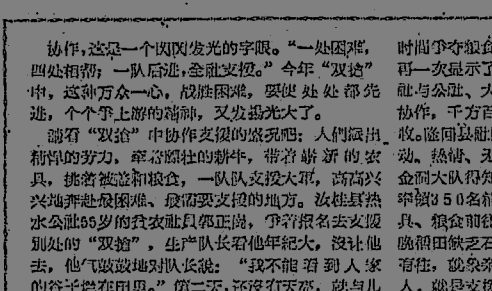 协作，这是一个闪闪发光的字眼。“一处困难，
四处相帮；一队后进，全社支援。”今年“双抢”
中，这种万众一心，战胜困难，要使处处都先
进，个个争上游的精神，又发扬光大了。
请看“双抢”中协作支援的盛况吧：人们派出
精悍的劳力，牵着肥壮的耕牛，带着崭新的农
具，挑着被盖和粮食，一队队支援大军，高高兴
兴地奔赴最困难、最需要支援的地方。汝桂县热
水公社55岁的贫农社员郭正岗，争着报名去支援
别处的“双抢”，生产队长看他年纪大，没让他
去，他气鼓鼓地对队长说：“我不能看到人家
的谷子烂在田里。”第二天，还没有天亮，就与几
时间争夺粮食
再一次显示了
社与公社、大
协作，千方百
收。隆回县
动、热情、无
金洞大队得知
率领350名
具、粮食前往
晚稻田缺乏石
有住，就
人，就是支援